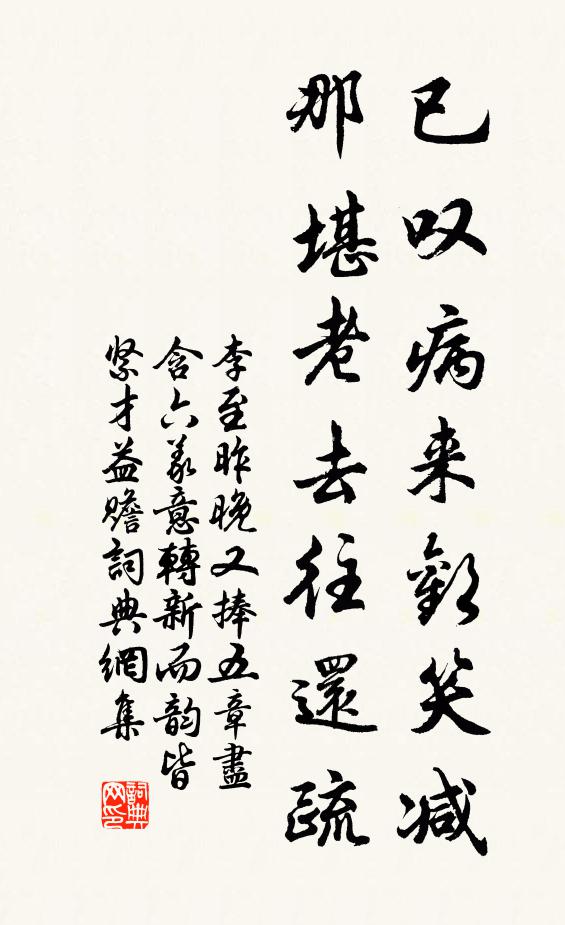 已叹病来歡笑减
那堪老去往還疏
李至昨晚又捧五章盡
含六義意轉新而韵皆
紧才益贍詞典網集
詞典网印